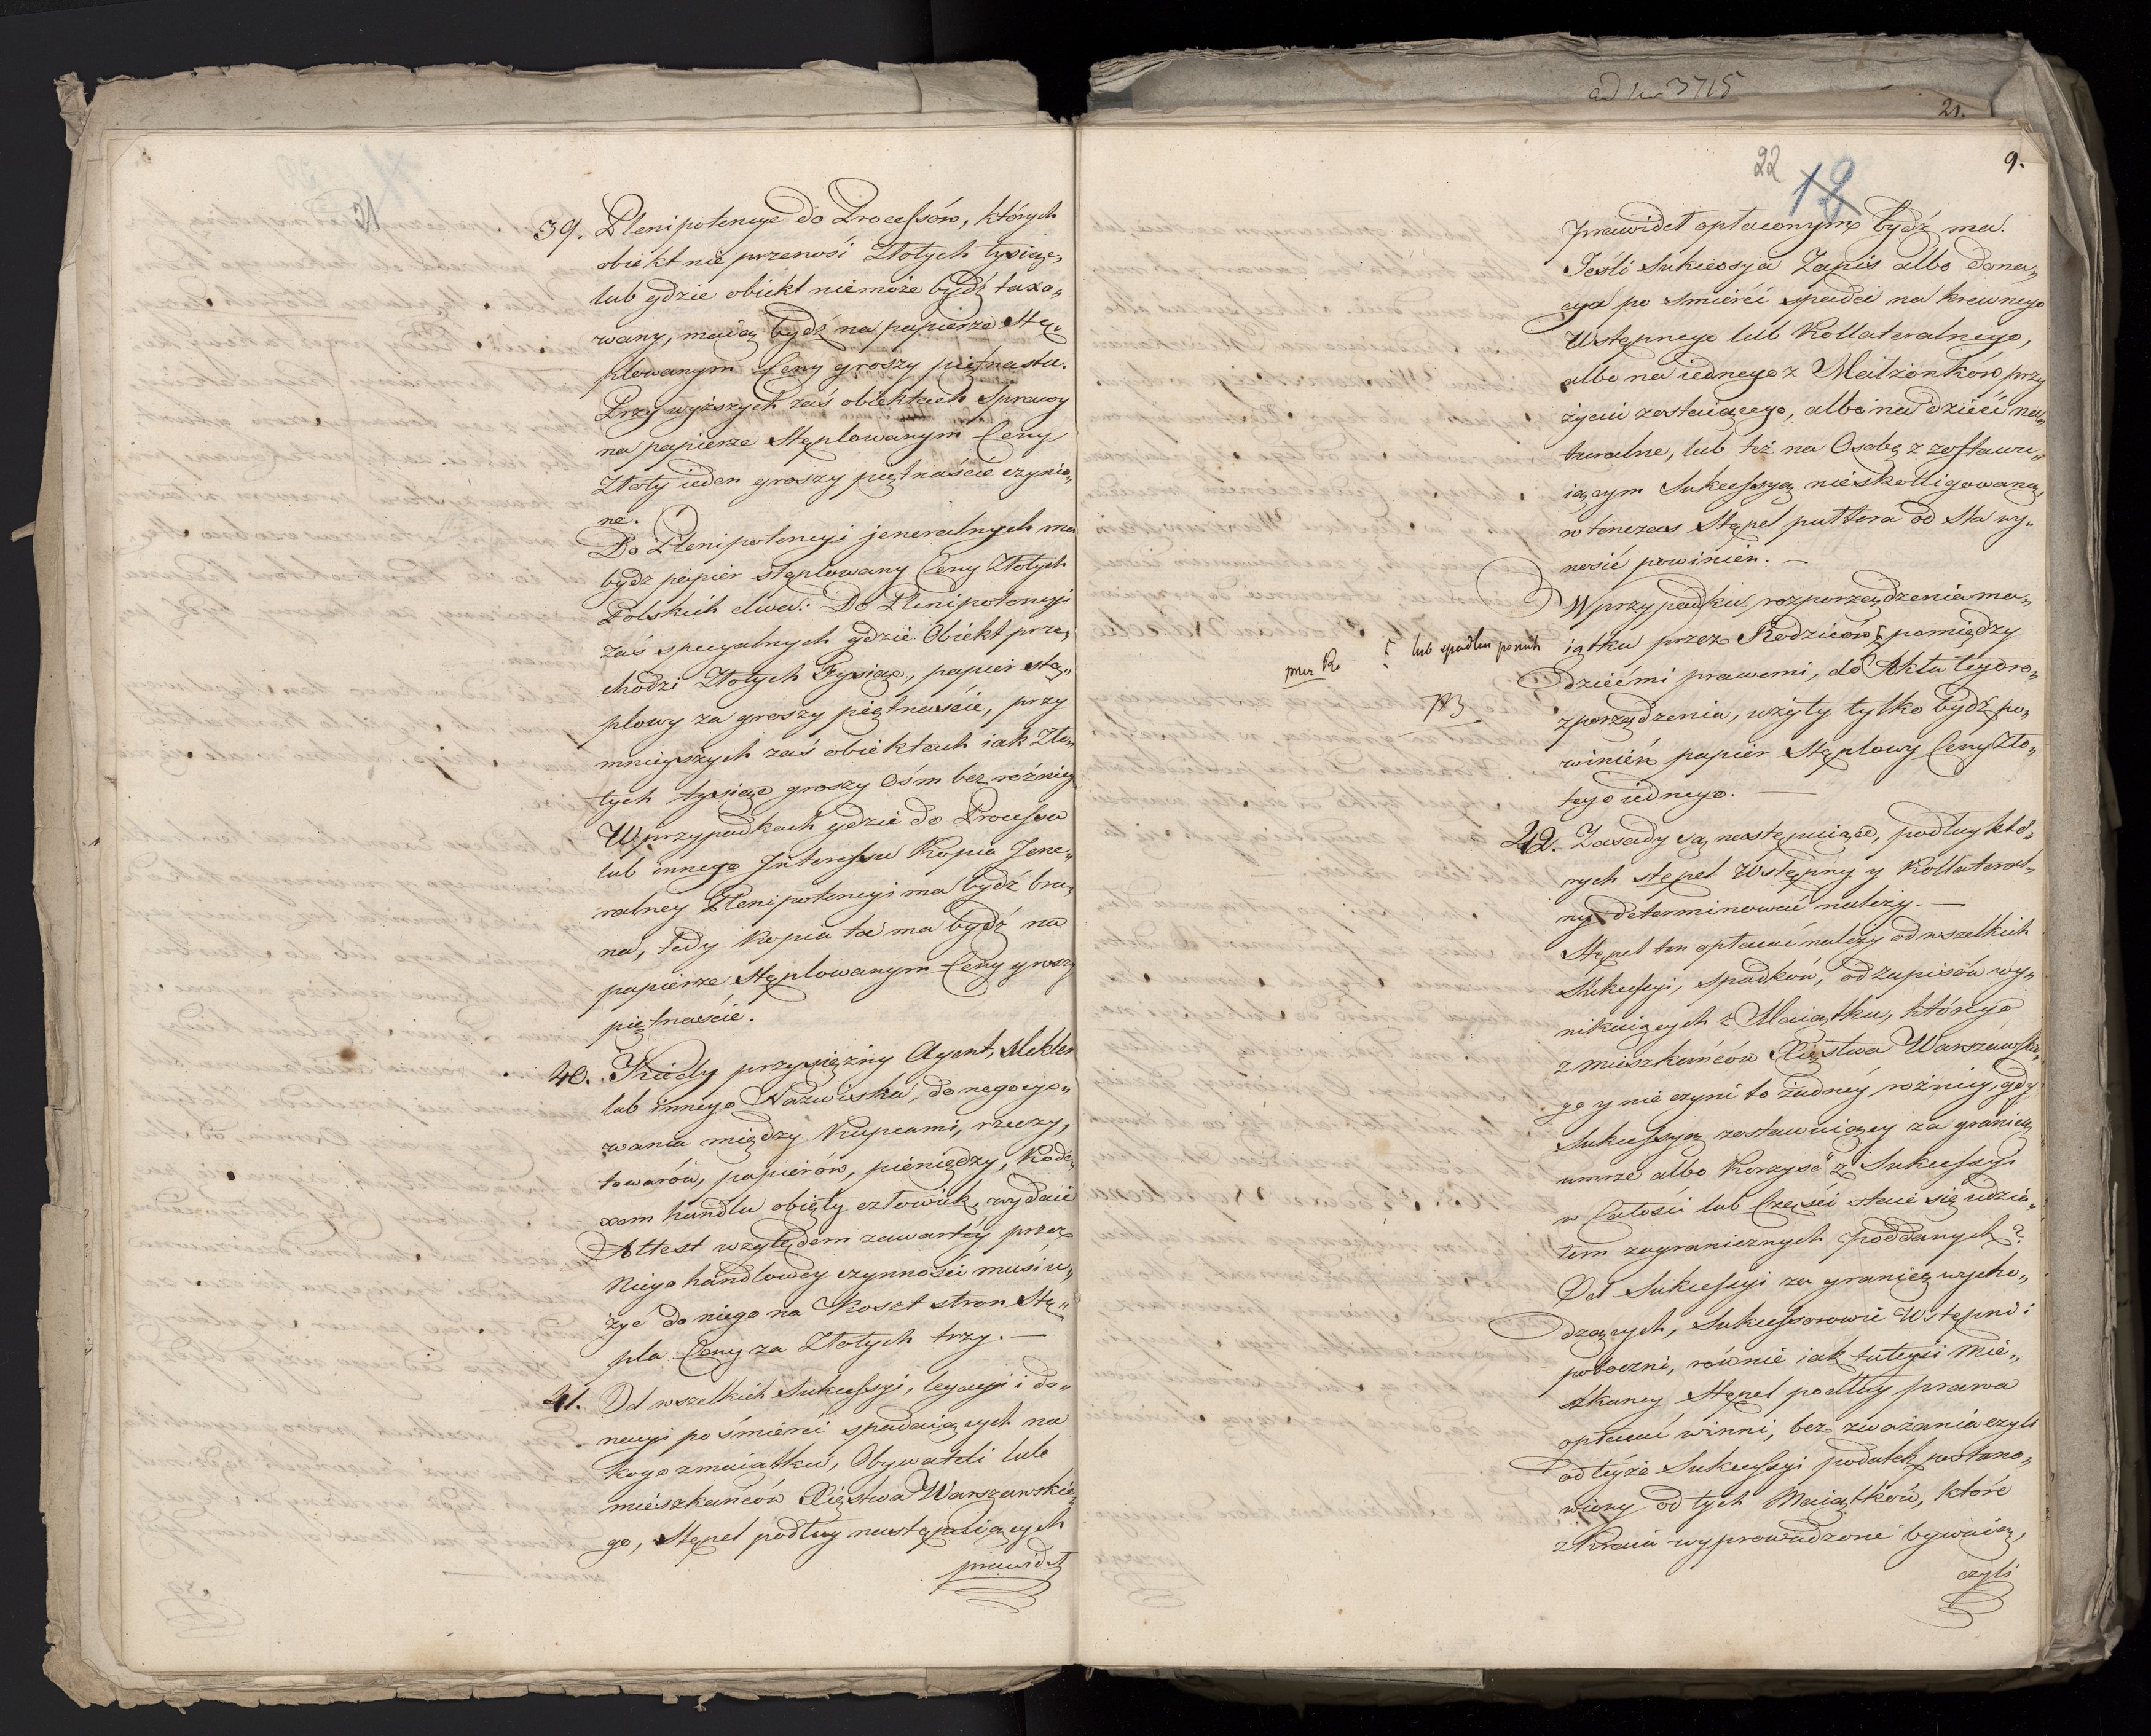 21
39. Plenipotencye do Processów, których
obiekt nie przenosi Złotych tysiąc,
lub gdzie obiekt niemoże bydź taxo„
wany, maią bydź na papierze Stę„
plowanym Ceny groszy piętnastu.
Przy wyższych zaś obiektach Sprawy
na papierze Stęplowanym Ceny
Złoty ieden groszy piętnaście czynio„
ne.
Do Plenipotencyi jeneralnych ma
bydź papier stęplowany Ceny Złotych
Polskich dwa: Do Plenipotencyi
zaś specyalnych gdzie Obiekt prze„
chodzi Złotych Tysiąc, papier stę„
plowy za groszy piętnaście, przy
mnieyszych zaś obiektach iak Zło„
tych tysiąc groszy Ośm bez rożnicy
W przypadkach gdzie do Processu
lub innego Interessu Kopia Jene„
ralney Plenipotencyi ma bydź bra„
na, tedy Kopia ta ma bydź na
papierze Stęplowanym Ceny groszy
piętnaście.
40. Kiedy przysiężny Agent, Mekler
lub innego Nazwiska, do negocyo„
wania między Kupcami, rzeczy,
towarów, papierów, pieniędzy, Kode„
xem handlu obięty człowiek, wydaie
Attest względem zawartéy przez
Niego handlowey czynności musi u„
żyć do niego na Koszt stron Stę„
pla Ceny za Złotych trzy. —
41. Od wszelkich Sukcessyi, legacyi i do„
nacyi po śmierci spadaiących na
kogo z maiątku, Obywateli lub
mieszkańców Xięstwa Warszawskie„
go, Stępel podług następuiących
prawideł
ad Nr 3715
21.
22
12
9.
prawideł opłaconym bydź ma.
Jeśli Sukcessya Zapis albo dona„
cya po śmierci spada na krewnego
Wstępnego lub Kollateralnego,
albo na iednego z Małżonków przy
życiu zostaiącego, albo na dzieci na„
turalne, lub też na Osobę z zostawu„
iącym Sukcessyą nieskolligowaną,
wtenczas Stępel puttora od sta wy„
nosić powinien. —
W przypadku rozporządzenia ma„
iątku przez Rodziców pomiędzy
lub spadku
dziećmi prawemi, do Aktu tego ro„
zporządzenia, użyty tylko bydź po„
winień papier Stęplowy Ceny Zło„
tego iednego. —
42. Zasady są następuiące, podług któ„
rych stępel Wstępny y Kollateral„
ny determinować należy. —
Stępel ten opłacać należy od wszelkich
Sukcessyi, spadków, od zapisów wy„
nikaiących z Maiątku, którego
z mieszkańców Xięstwa Warszawskie„
go y nie czyni to żadnéy rożnicy, gdy
Sukcessyą zostawuiący za granicą
umrze albo Korzyść z Sukcessyi
w Całości lub Części staie się udzia„
łem zagranicznych poddanych?
Od Sukcessyi za granicę wycho„
dzących, Sukcessorowie Wstępni i
poboczni, równie iak tuteysi mie„
szkancy Stępel podług prawa
opłacać winni, bez zważania czyli
od teyże Sukcessyi podatek postano„
wiony od tych Maiątków, które
z Kraiu wyprowadzone bywaią,
czyli